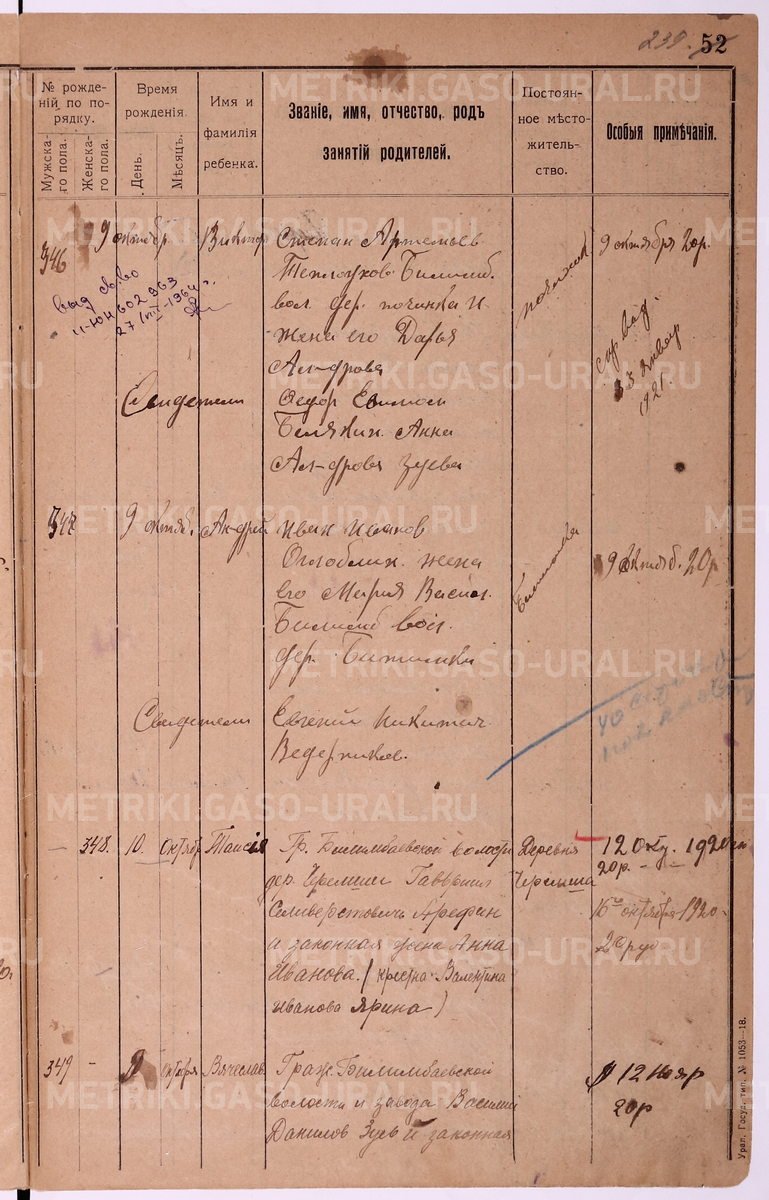 239. 52
№ рожде-
ній по по-
рядку.
Мужска-
го пола.
Женска-
го пола.
Время
рожденія.
День.
Мѣсяцъ.
Имя и
фамилія
ребенка.
Званіе, имя, отчество, родъ
занятій родителей.
Постоян-
ное мѣсто-
житель-
ство.
Особыя примѣчанія.
346
9 октябр.
Виктор
Степан Артемьев
Теплоухов. Билимб.
вол. дер. починка и
жена его Дарья
Ал-дрова
починок
9 октября 20р.
выд св-во
II-ЮН 602363
27/VII-1964 г.
Свидетели
Федор
Белякин. Анна
Ал-дрова Зуева
347
9 октяб.
Ан-дрей
Иван Иванов
Оглоблин. жена
его Мария Васил.
Билимб вол.
дер. Битимки
9 октяб. 20р
Свидетели
Евгений Никитич
Ведерников.
348.
10.
октябр
Таисія
Гр. Билимбаевской волости
дер. Черемши Гавриил
Селиверстович Арефин
и законная жена Анна
Иванова. (крестна Валентина
Иванова Ярина)
Деревня
Черемша
12 Окт. 1920 г
20р.
16го октября 1920
20 руб
349
-
9
октября
Вячеслав
Граж. Билимбаевской
волости и завода Василий
Данилов Зуев и законная
12 Нояр
20р
Урал. Госуд. тип. № 1053—18.
METRIKI.GASO-URAL.RU